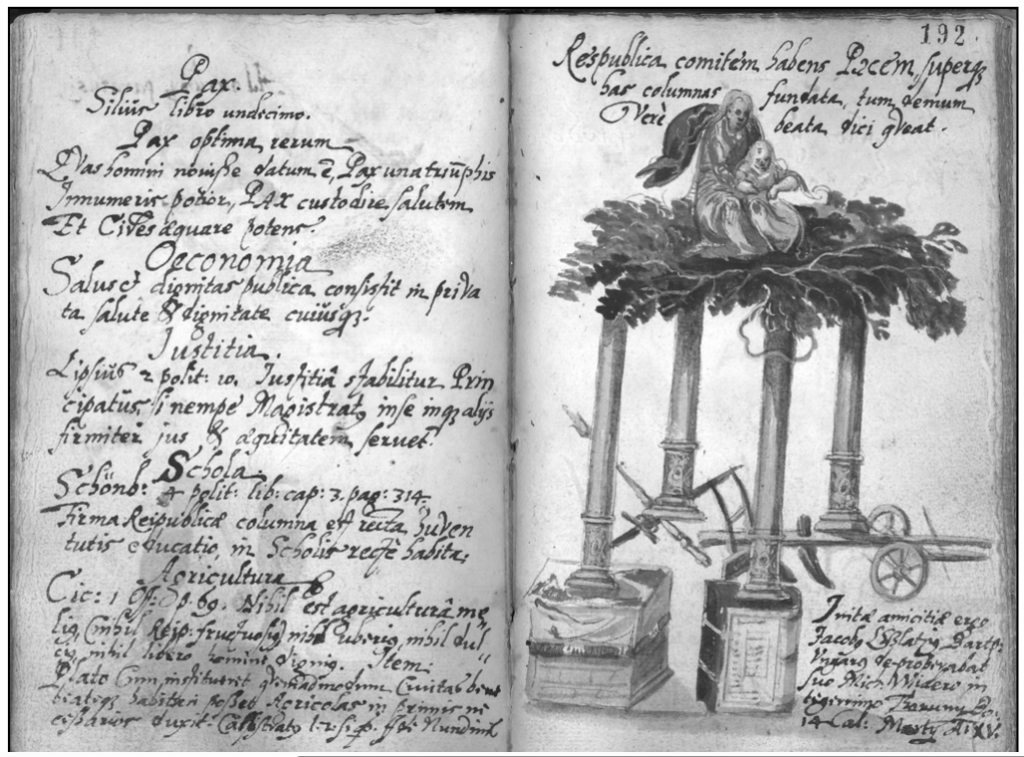 Pax.
Silius libro undecimo.
Pax optima rerum
Quas homini novisse datum ẽ, Pax una triũphis
Innumeris potior, PAX custodire salutem
Et Cives æquare potens.
Oeconomia
Salus & dignitas publica consistit in priva
ta salute & dignitate cuiusq.
Iustitia.
Lipsius 2 polit: 10. Iustitiâ stabilitur Prin
cipatus, si nempe Magistratq inse inq alijs
firmiter jus & æquitatem servet.
Schola.
Schönb: 4 polit: lib: cap: 3. pag: 314.
Firma Reipublicæ columna est recta Iuven
tutis educatio, in Scholis rectè habita.
Agricultura
Cic: 1 Of: 69. Nihil est agriculturâ me
liq, nihil Reip: fructuosiq nihil uberiq, nihil dul
ciq, nihil libero homine digniq. Item
Plato Cum institueret quemadmodum Civitas bene
beateq habitari posset Agricolas in primis ne
cessarios duxit Callistratq ff de Nundinis
192
Respublica comitem habens Pacem, superq
has columnas fundata, tum demum
Verè beata dici queat.
Initæ amicitiæ ergo
Jacobq Bartp:
Ungarq deproberabat
suo Mich: Widero in
14 Cal: